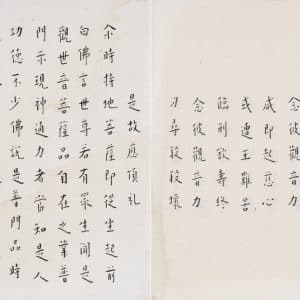 念彼觀音力
咸即起慈心
或遭王難苦
臨刑欲壽終
念彼觀音力
刀尋段段壞
是故應頂礼
尒時持地菩薩即從坐起前
白佛言世尊若有眾生聞是
觀世音菩薩品自在之業普
門示現神通力者當知是人
功德不少佛說是普門品時